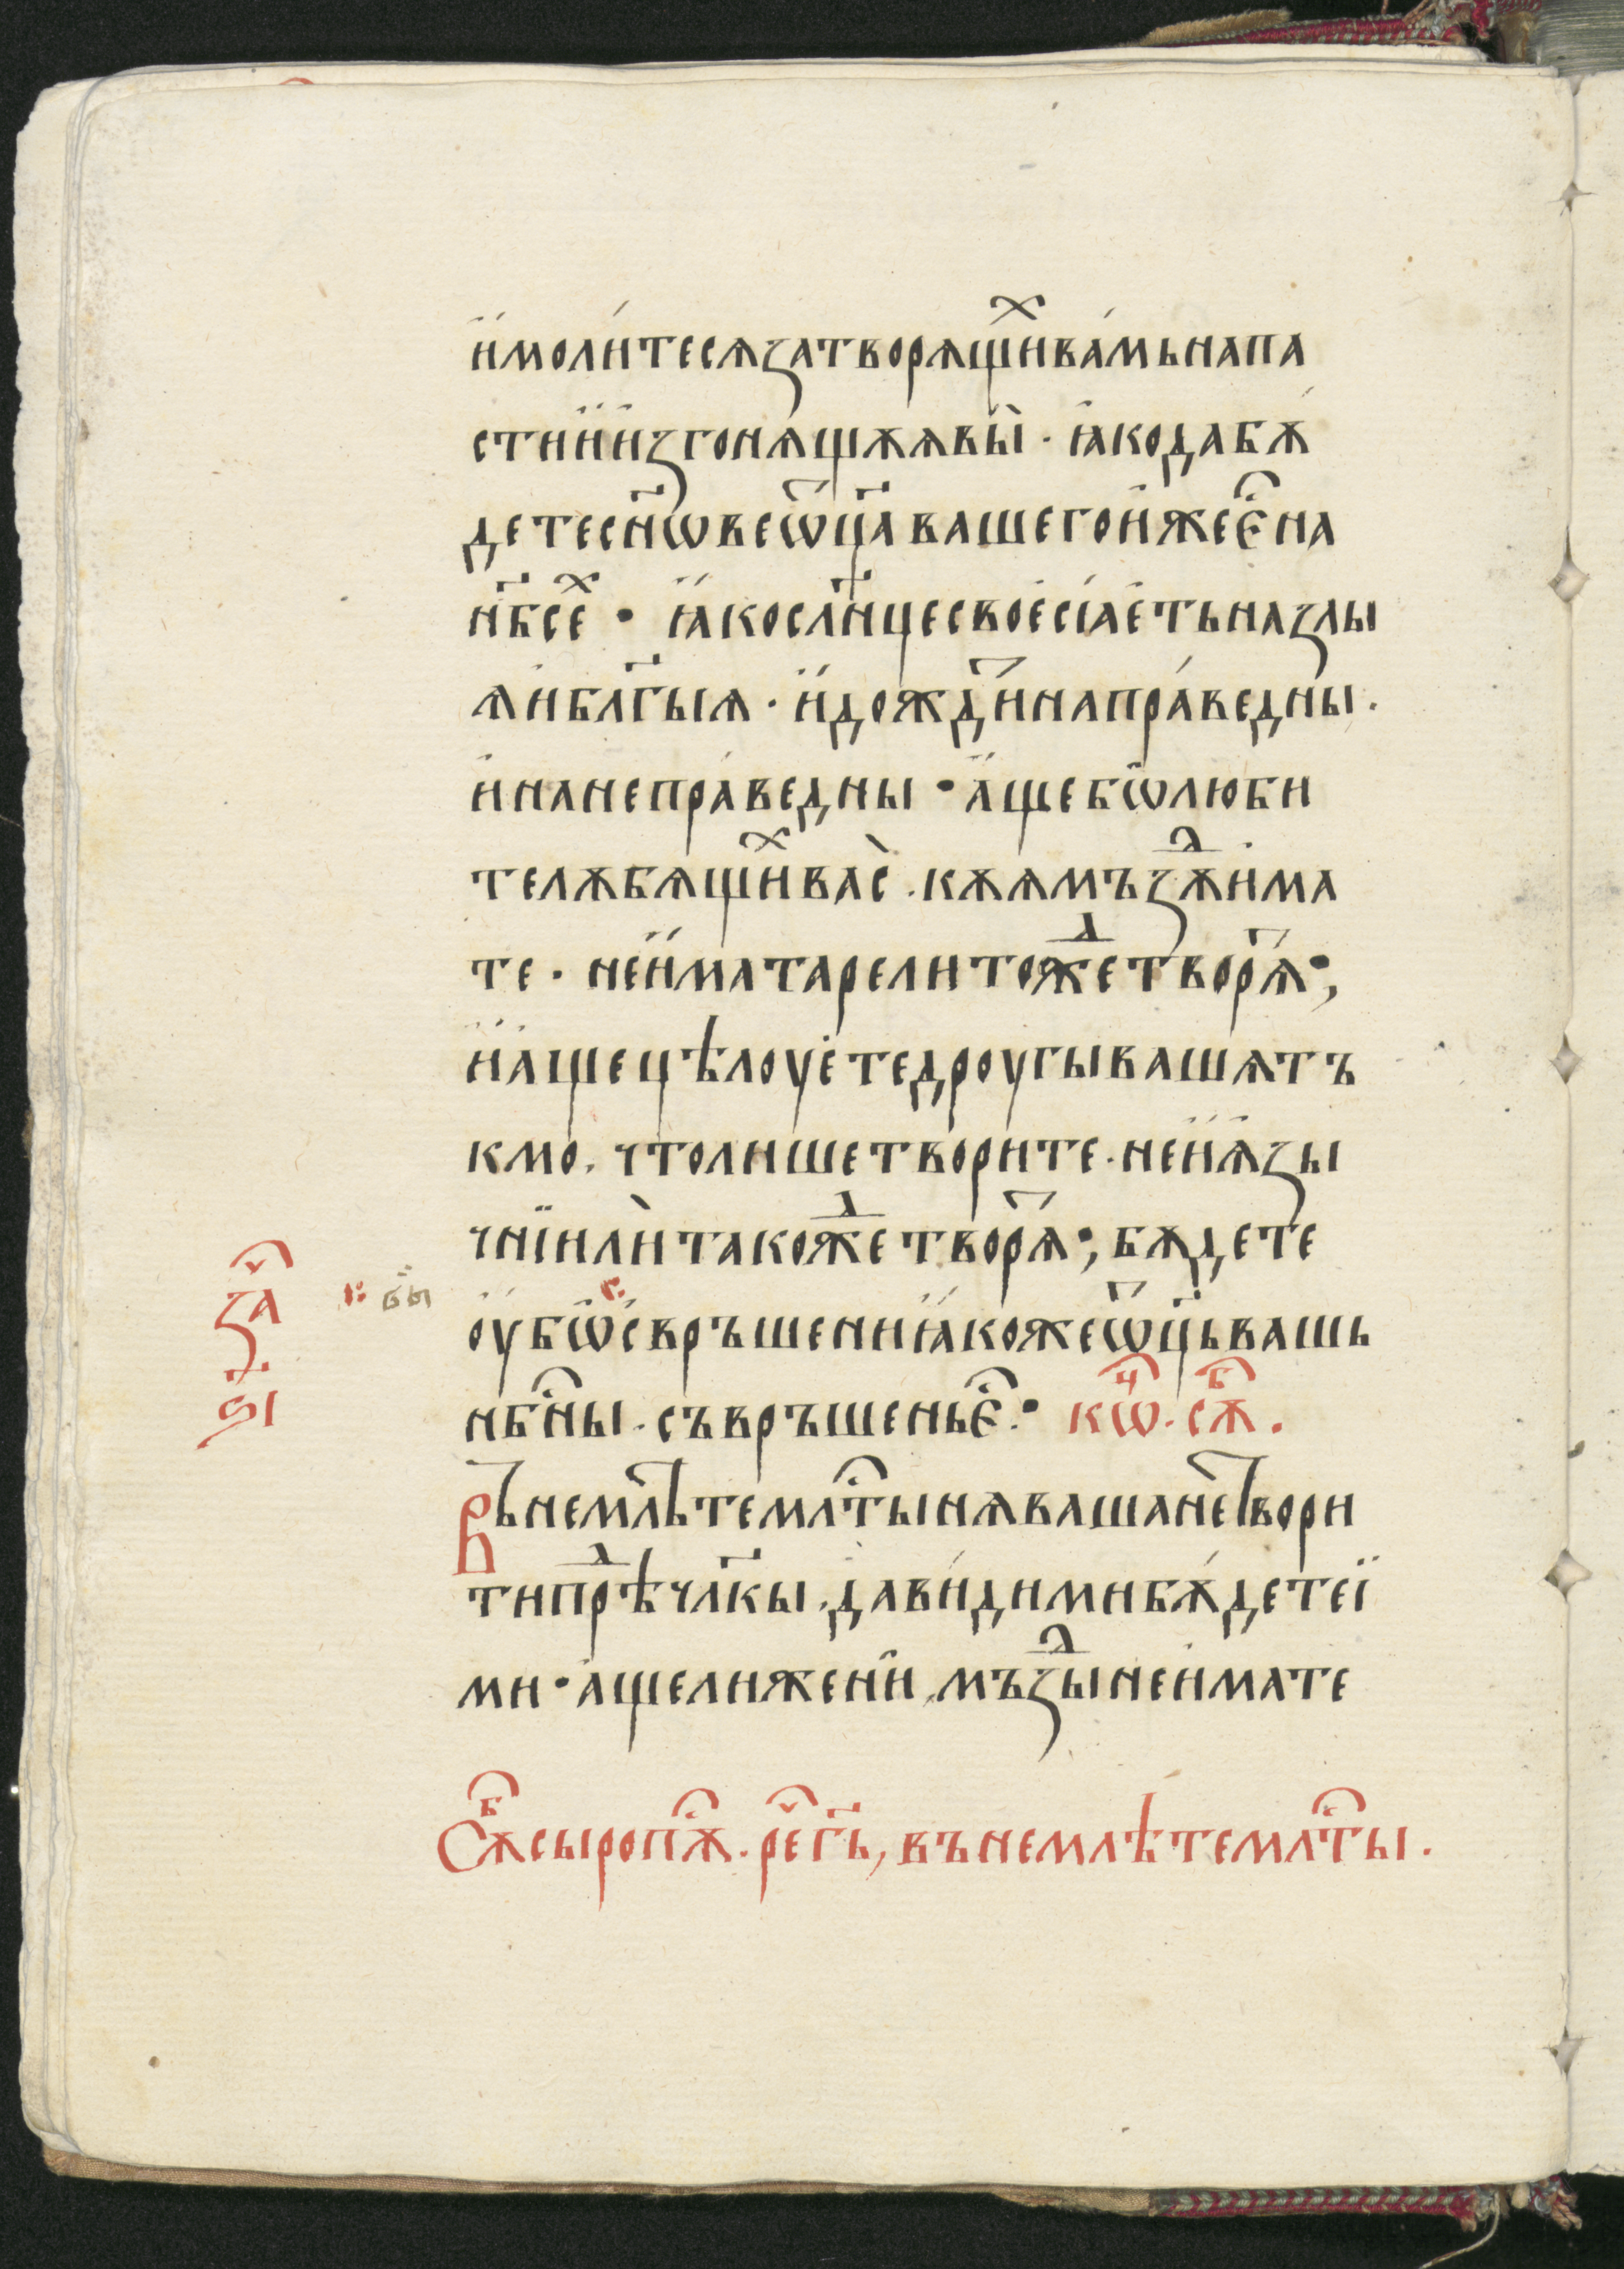 и҆моли́тесѧзатворѧщи̑ⷯва́мьнапа
стиии҆згонѧщѫѧвы̀ · ꙗ҆кодабѫ́
детесн҃ѡвеѿц҃авашегои҆жеє҆̑на
нб҃се̑ⷯ · ꙗ҆косл҃нцесвоесїаетьназлы
ѧ҆иблг҃ыѧ · и҆дождⷮи҆напра́ведны ·
и҆нанепра́ведны · а҆щебѡ̑люби
телѫбѧщи̑ⷯвас̀ · кѫѧмъзⷣѫи҆ма
те · неи҆матарелитоⷤдетворѧⷮ ·,
и҆а҆щецѣлоуетедроугывашѧтъ
кмо · чтолишетворите · неи҆ѧ҆зы
чнїили̇такоⷤдетворѧⷮ ·, бѫдете
оу҆бѡ̑свръшенниꙗ҆кожеѿц҃ьвашь
нбⷭ҇ны · съвръшеньє҆̑ · кѡⷩ҇ · сѫⷠ҇ ·
Вънемл̑ѣтемлⷭ҇тынѧвашанетвори
типрⷣѣчл҃кы · дави́димибѫ́детеї
ми · а҆щелижени̑, мъзⷣыне и҆мате
Сѫⷠ҇сыропⷭ҇ѫ · рⷱ҇е г҃ь, вънемлѣтемлⷭ҇ты ·
за҇ⷱ
ѕ҃і
: бы